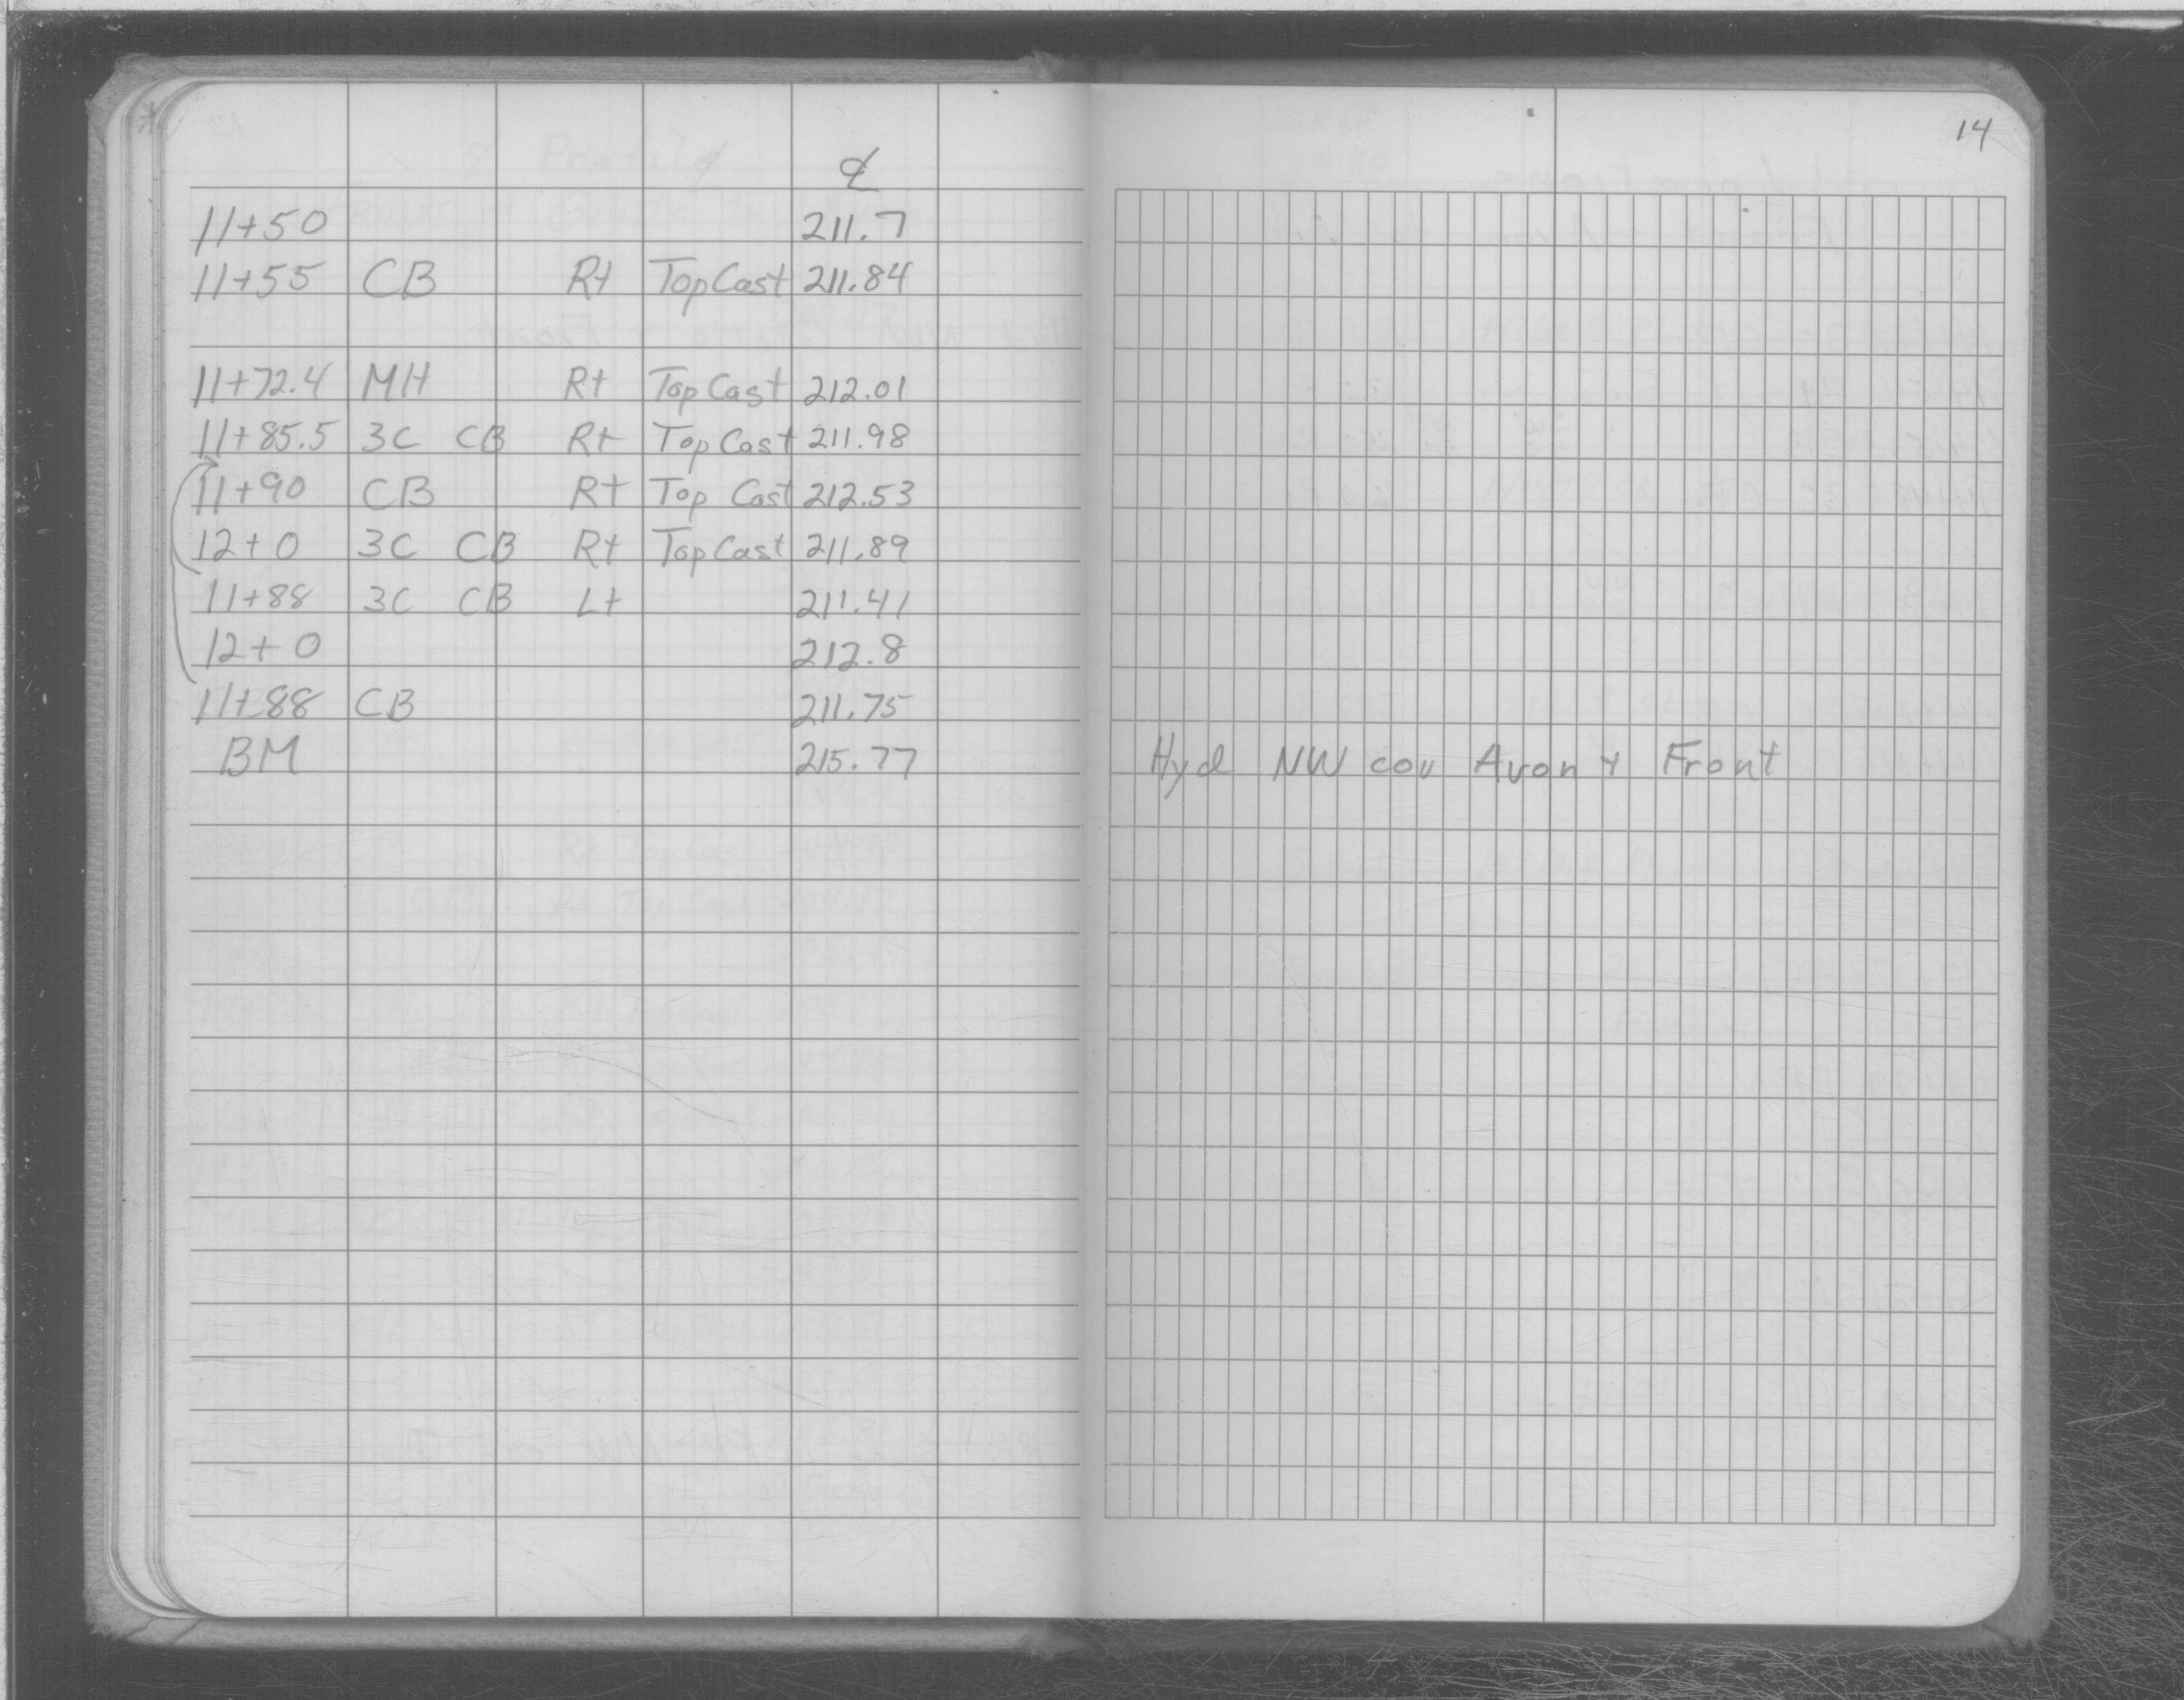 14
℄
11+50 211.7
11+55 CB Rt Top Cast 211.84
11+72.4 MH Rt Top Cast 212.01
11+85.5 3C CB Rt Top Cast 211.98
11+90 CB Rt Top Cast 212.53
12+0 3C CB Rt Top Cast 211.89
11+88 3C CB Lt 211.41
12+0 212.8
11+88 CB 211.75
BM 215.77 Hyd NW cor Avon + Front